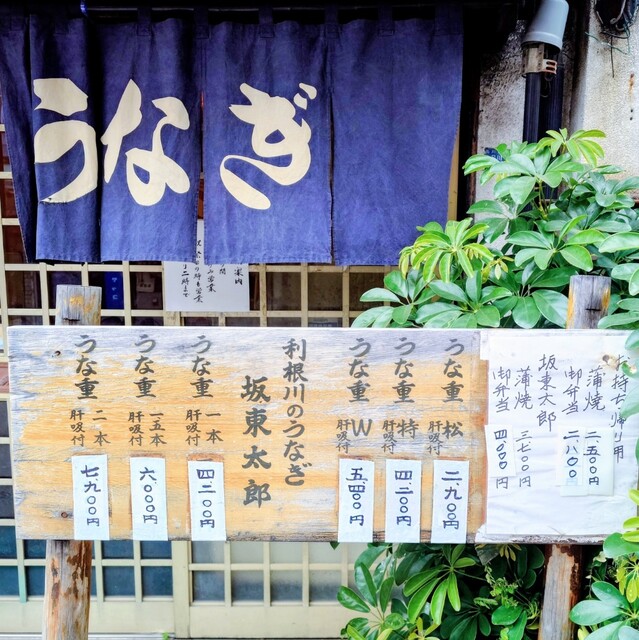 うなぎ
案内
お持ち帰り用
蒲焼 二、五〇〇円
御弁当 二、八〇〇円
坂東太郎
蒲焼 三七〇〇円
御弁当 四〇〇〇円
うな重 松
肝吸付
二、九〇〇円
うな重 特
肝吸付
四、二〇〇円
うな重 W
肝吸付
五、四〇〇円
利根川のうなぎ
坂東太郎
うな重 一本
肝吸付
四、二〇〇円
うな重 一.五本
肝吸付
六、〇〇〇円
うな重 二本
肝吸付
七、九〇〇円